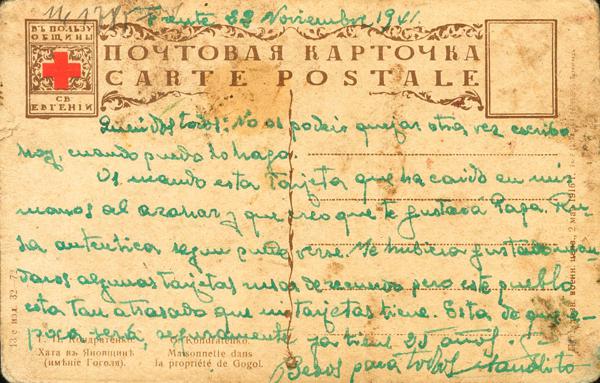 Frente 22 Noviembre 1941.
ВЪ ПОЛЬЗУ
ОБЩИНЫ
СВ.
ЕВГЕНІИ
ПОЧТОВАЯ КАРТОЧКА
CARTE POSTALE
Queridos todos: No os podeis quejar otra vez escribo
hoy, cuando puedo lo hago.
Os mando esta tarjeta que ha caido en mis
manos al azahar y que creo que te gustará Papa. Ru-
sa autentica segun puede verse. Me hubiera gustado man-
daros algunas tarjetas rusas de recuerdo pero este pueblo
esta tan atrasado que ni tarjetas tiene. Esta de que e-
poca será, seguramente ya tiene 25 años.
Besos para todos Manolito
Кондратенко.
Хата въ Яновщинѣ
(имѣніе Гоголя).
G. Kondratenko.
Maisonnette dans
la propriété de Gogol.